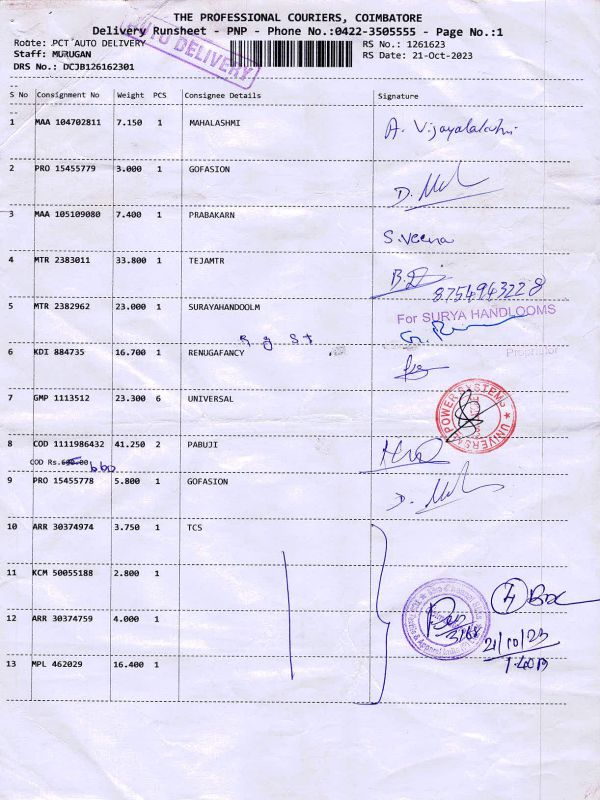 THE PROFESSIONAL COURIERS, COIMBATORE
Delivery Runsheet - PNP - Phone No.:0422-3505555 - Page No.:1
Route: PCT AUTO DELIVERY RS No.: 1261623
Staff: MURUGAN RS Date: 21-Oct-2023
DRS No.: DCJB126162301
AUTO DELIVERY
S No Consignment No Weight PCS Consignee Details Signature
1 MAA 104702811 7.150 1 MAHALASHMI A. Vijayalakshmi
2 PRO 15455779 3.000 1 GOFASION
3 MAA 105109080 7.400 1 PRABAKARN S.Veena
4 MTR 2383011 33.800 1 TEJAMTR
8754943228
5 MTR 2382962 23.000 1 SURAYAHANDOOLM For SURYA HANDLOOMS
R g St
Proprietor
6 KDI 884735 16.700 1 RENUGAFANCY
7 GMP 1113512 23.300 6 UNIVERSAL UNIVERSAL POWER SYSTEMS
8 COD 1111986432 41.250 2 PABUJI
COD Rs.600.00 660
9 PRO 15455778 5.800 1 GOFASION
10 ARR 30374974 3.750 1 TCS
11 KCM 50055188 2.800 1
4 Box
12 ARR 30374759 4.000 1
21/10/23
13 MPL 462029 16.400 1